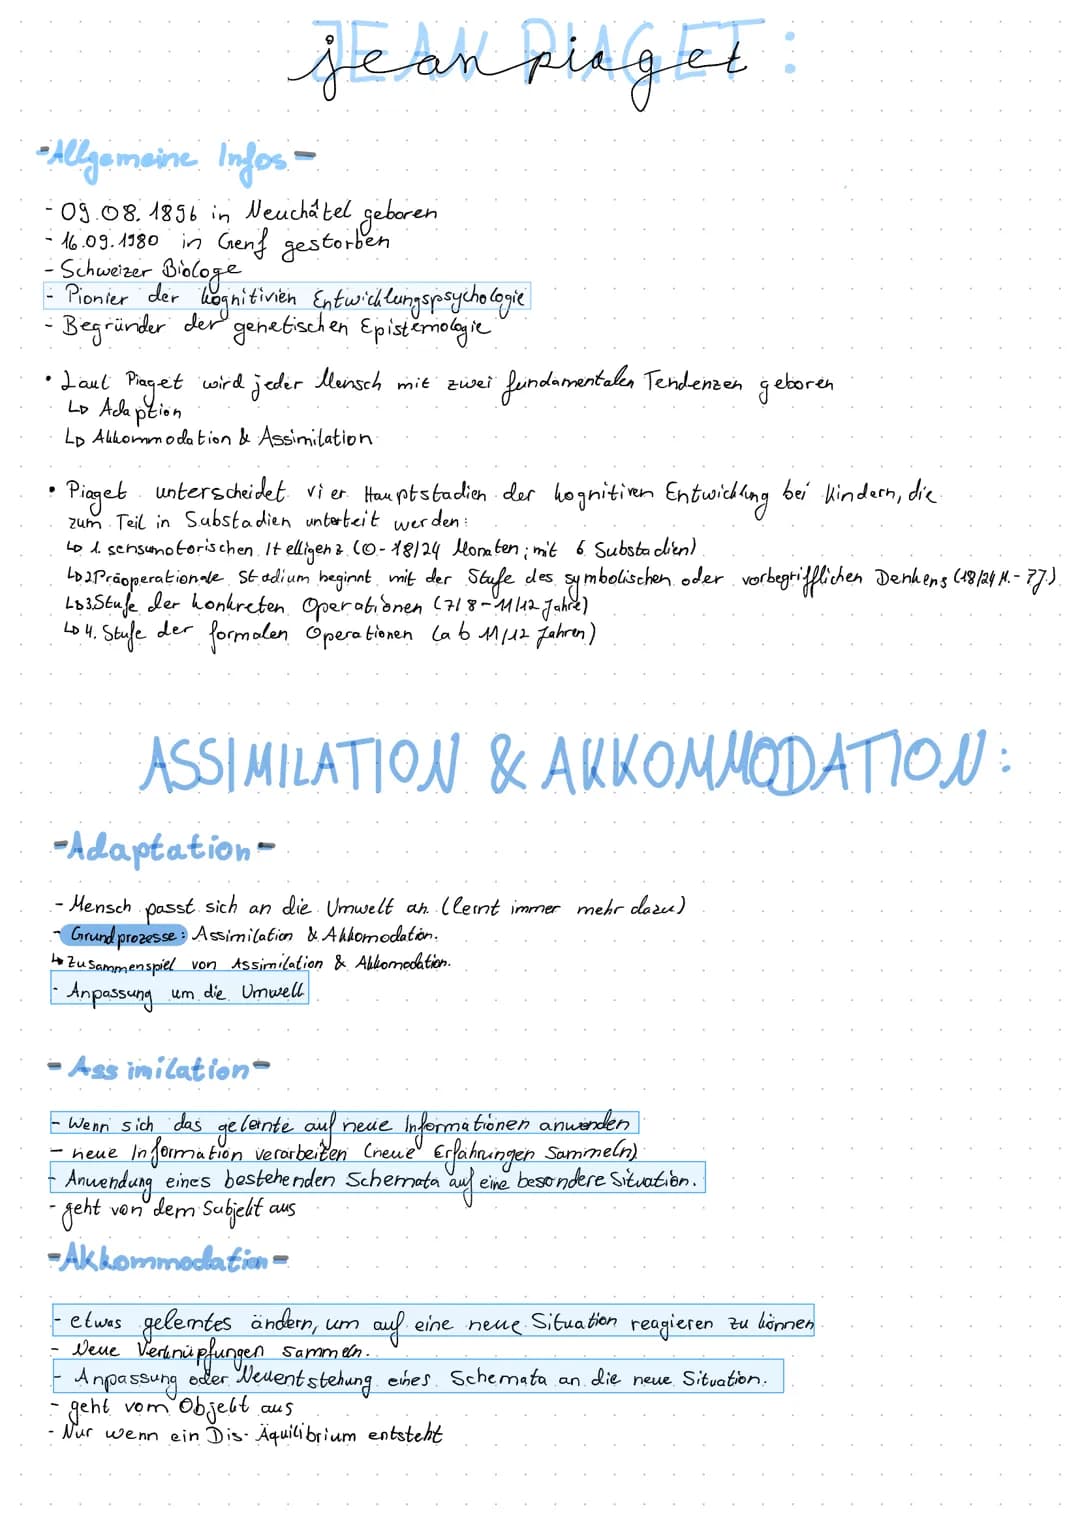 JEAN PIAGET:
jean piaget
-Allgemeine Infos-
- 09.08.1896 in Neuchâtel geboren
- 16.09.1980 in Genf gestorben
- Schweizer Biologe
- Pionier der kognitivien Entwicklungspsychologie
- Begründer der genetischen Epistemologie
• Laut Piaget wird jeder Mensch mit zwei fundamentalen Tendenzen geboren
↳ Adaption
↳ Akkommodation & Assimilation
• Piaget unterscheidet vier Hauptstadien der kognitiven Entwicklung bei Kindern, die
zum Teil in Substadien unterteit werden:
↳ 1. sensumotorischen Itelligenz (0-18/24 Monaten; mit 6 Substadien)
↳ 2 Präoperationale Stadium beginnt mit der Stufe des symbolischen oder vorbegrifflichen Denkens (18/24 M.- 7J.)
↳ 3. Stufe der konkreten Operationen (7/8-11/12 Jahre)
↳ 4. Stufe der formalen Operationen (ab 11/12 Jahren)
ASSIMILATION & AKKOMMODATION:
-Adaptation-
- Mensch passt sich an die Umwelt an (lernt immer mehr dazu)
- Grundprozesse: Assimilation & Akkomodation.
↳ Zusammenspiel von Assimilation & Akkomodation.
- Anpassung um die Umwelt
- Assimilation-
- Wenn sich das gelernte auf neue Informationen anwenden
- neue Information verarbeiten (neue Erfahrungen Sammeln)
- Anwendung eines bestehenden Schemata auf eine besondere Situation.
- geht von dem Subjekt aus
-Akkommodation-
- etwas gelerntes ändern, um auf eine neue Situation reagieren zu können
- Neue Verknüpfungen sammeln.
- Anpassung oder Neuentstehung eines Schemata an die neue Situation.
- geht vom Objekt aus
- Nur wenn ein Dis-Äquilibrium entsteht